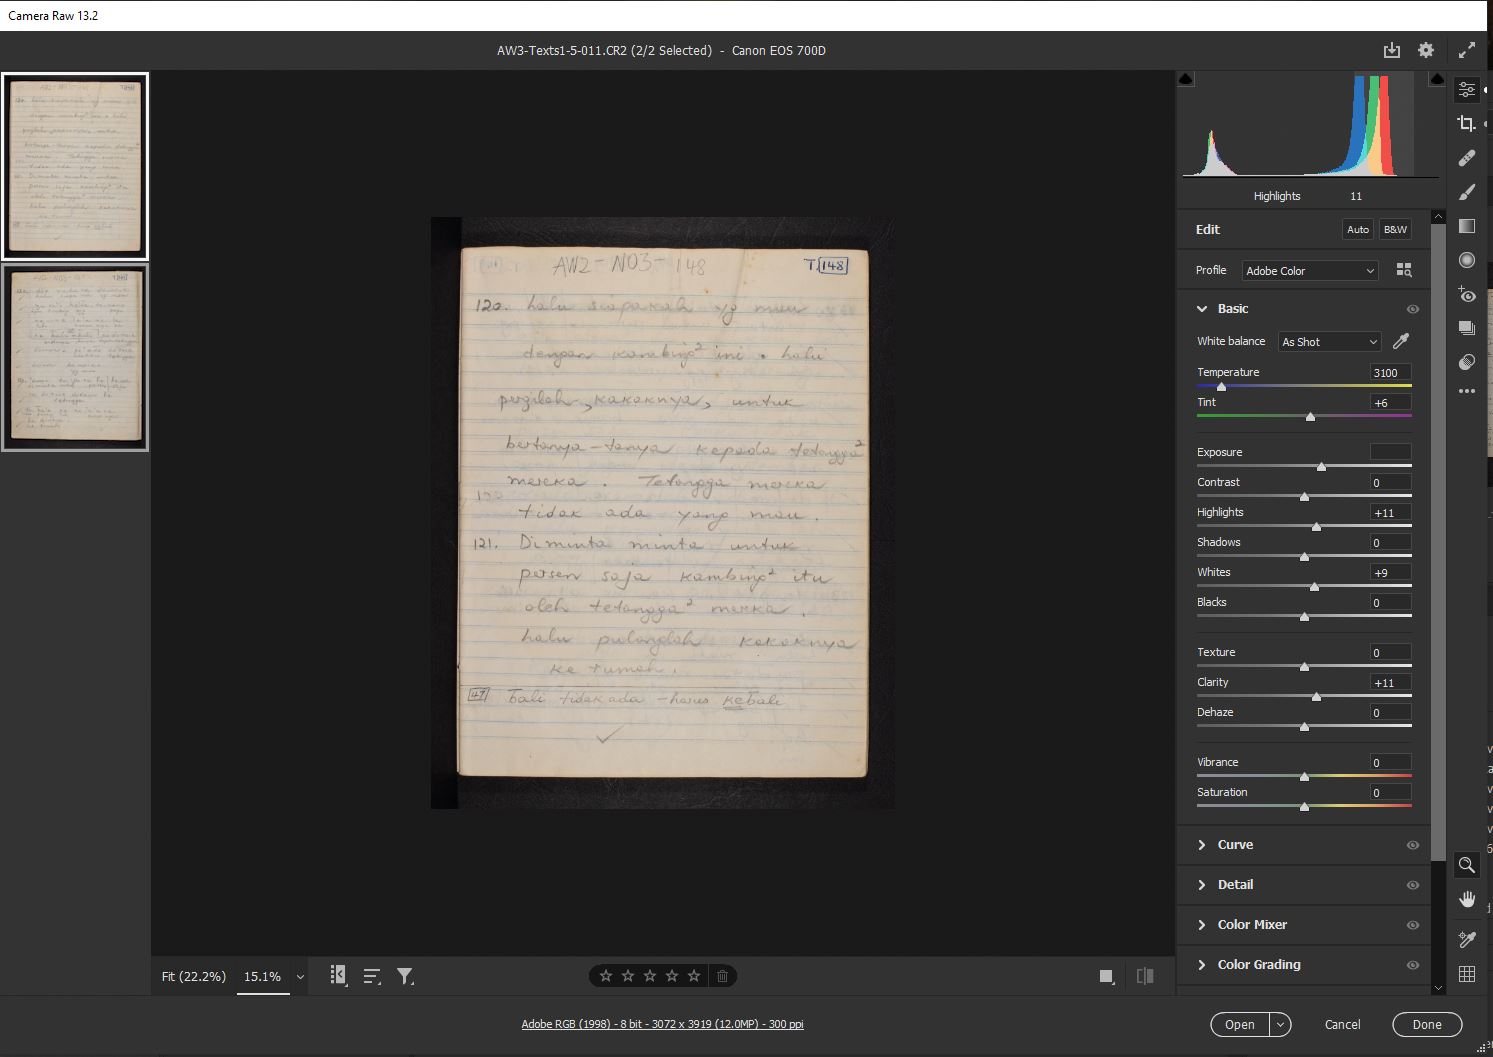 Camera Raw 13.2
AW3-Texts1-5-011.CR2 (2/2 Selected) - Canon EOS 700D
AW2-NO3-148
T.148
120. Lalu siapakah yg mau
dengan kambing² ini. Lalu
pergilah, kakaknya, untuk
bertanya-tanya kepada tetangga²
mereka. Tetangga mereka
tidak ada yang mau.
121. Diminta minta untuk
persen saja kambing² itu
oleh tetangga² merka.
Lalu pulanglah kakaknya
ke rumah.
47 Bali tidak ada - harus keBali
Highlights 11
Edit
Auto
B&W
Profile
Adobe Color
Basic
White balance
As Shot
Temperature 3100
Tint +6
Exposure
Contrast 0
Highlights +11
Shadows 0
Whites +9
Blacks 0
Texture 0
Clarity +11
Dehaze 0
Vibrance 0
Saturation 0
Curve
Detail
Color Mixer
Color Grading
Fit (22.2%)
15.1%
Adobe RGB (1998) - 8 bit - 3072 x 3919 (12.0MP) - 300 ppi
Open
Cancel
Done